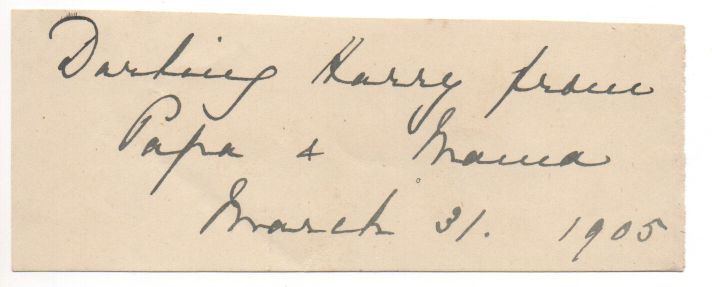 Darling Harry from
Papa & Mama
March 31. 1905